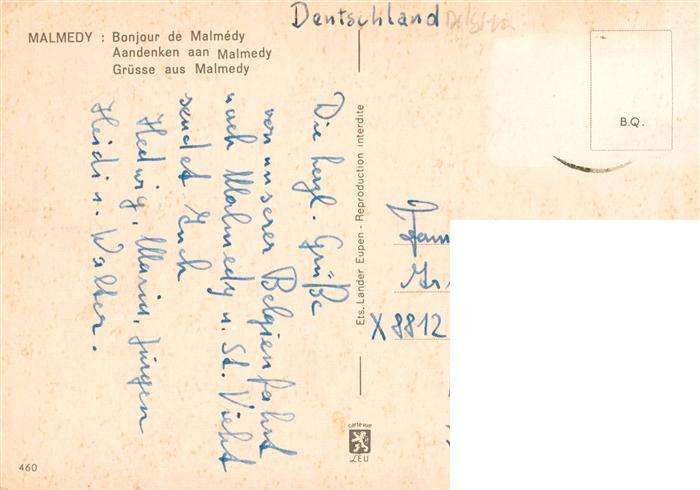 MALMEDY : Bonjour de Malmédy
Aandenken aan Malmedy
Grüsse aus Malmedy
Deutschland
B.Q.
Die herzl. Grüße
von unserer Belgienfahrt
nach Malmedy u. St. Vieht
sendet Euch
Hedwig, Maria, Jürgen
Heidi u. Walter.
Ets. Lander Eupen - Reproduction interdite
X 8812
carte vue
LEU
460